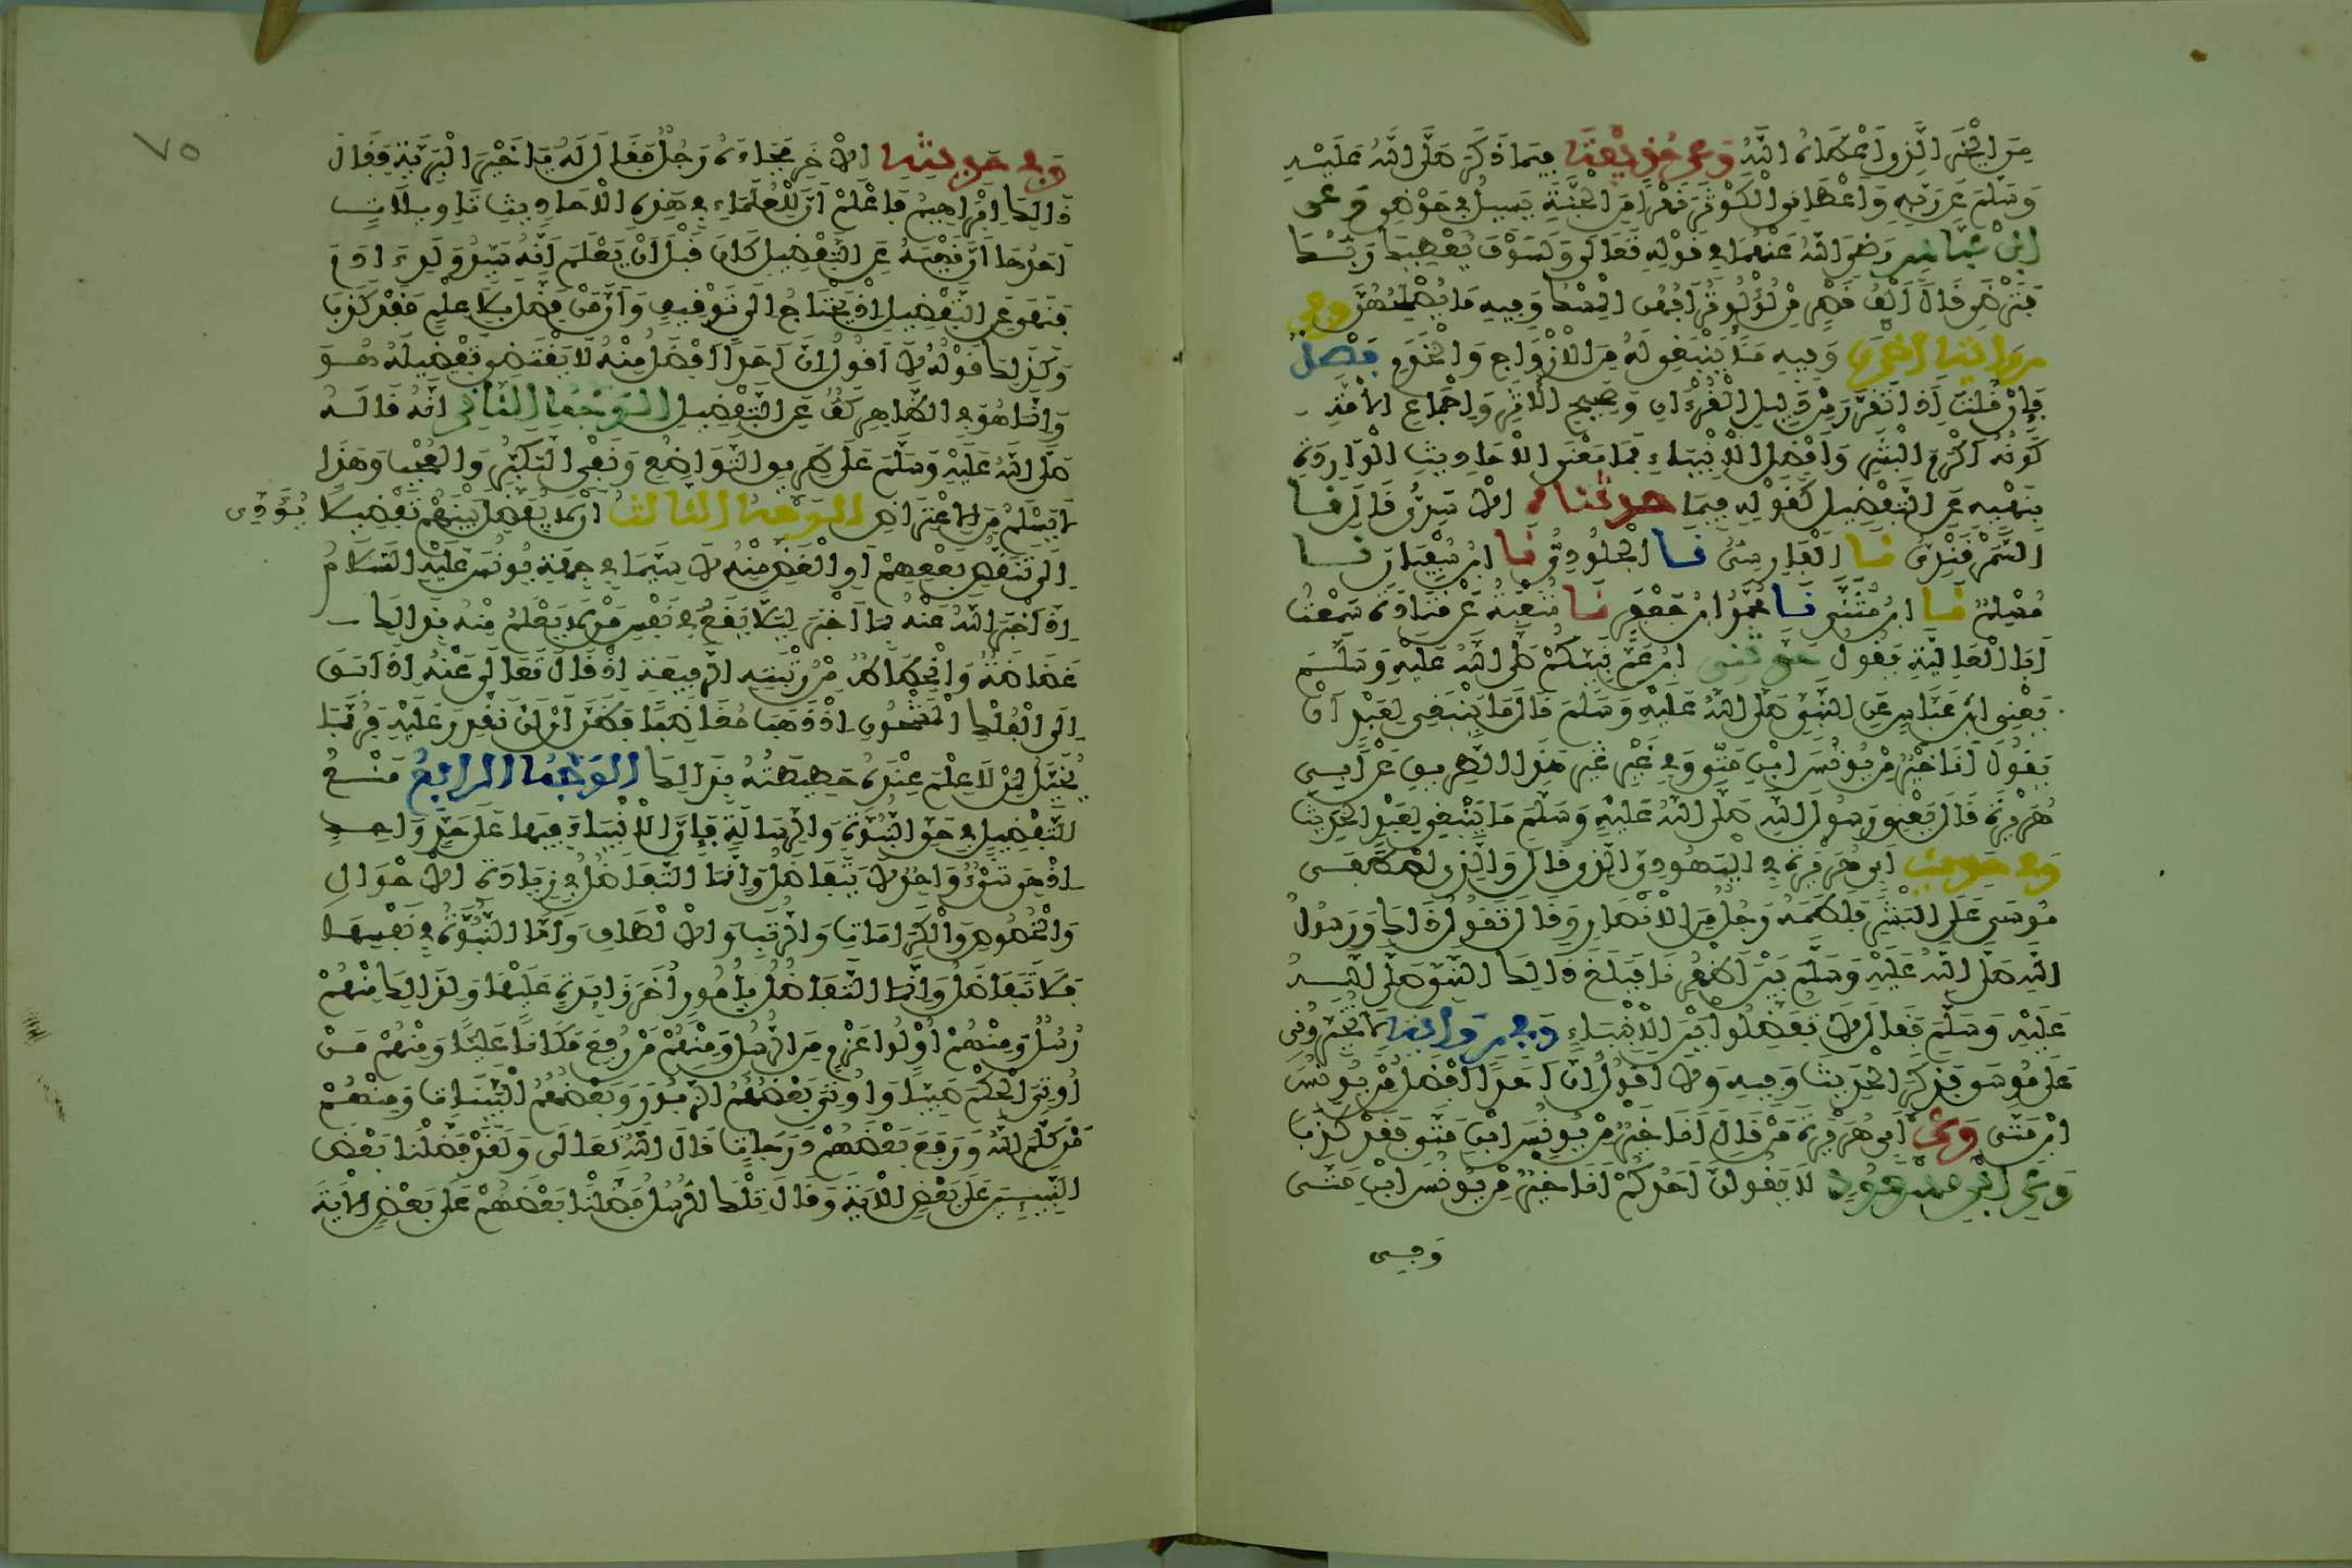 مِنَ الْخَيْرِ الَّذِي أَعْطَاهُ اللَّهُ وَعَنْ حُذَيْفَةَ فِيمَا ذَكَرَ صَلَّى اللَّهُ عَلَيْهِ
وَسَلَّمَ عَنْ رَبِّهِ وَأَعْطَانِي الْكَوْثَرَ نَهْرًا مِنَ الْجَنَّةِ يَسِيلُ فِي حَوْضِي وَعَنِ
ابْنِ عَبَّاسٍ رَضِيَ اللَّهُ عَنْهُمَا فِي قَوْلِهِ تَعَالَى وَلَسَوْفَ يُعْطِيكَ رَبُّكَ
فَتَرْضَى قَالَ أَلْفُ قَصْرٍ مِنْ لُؤْلُؤٍ تُرَابُهُنَّ الْمِسْكُ وَفِيهِ مَا يُصْلِحُهُنَّ وَفِي
رِوَايَةٍ أُخْرَى وَفِيهِ مَا يَنْبَغِي لَهُ مِنَ الْأَزْوَاجِ وَالْخَدَمِ فَصْلٌ
فَإِنْ قُلْتَ إِذَا تَقَرَّرَ مِنْ دَلِيلِ الْقُرْءَانِ وَصَحِيحِ الْأَثَرِ وَإِجْمَاعِ الْأُمَّةِ
كَوْنُهُ أَكْرَمَ الْبَشَرِ وَأَفْضَلَ الْأَنْبِيَاءِ فَمَا مَعْنَى الْأَحَادِيثِ الْوَارِدَةِ
بِنَهْيِهِ عَنِ التَّفْضِيلِ كَقَوْلِهِ فِيمَا حَدَّثَنَاهُ الْأَسَدِيُّ قَالَ نَا
السَّمَرْقَنْدِيُّ نَا الْفَارِسِيُّ نَا الْجُلُودِيُّ نَا ابْنُ سُفْيَانَ نَا
مُسْلِمٌ نَا ابْنُ مُثَنَّى نَا مُحَمَّدُ ابْنُ جَعْفَرٍ نَا شُعْبَةُ عَنْ قَتَادَةَ سَمِعْتُ
أَبَا الْعَالِيَةِ يَقُولُ حَدَّثَنِي ابْنُ عَمِّ نَبِيِّكُمْ صَلَّى اللَّهُ عَلَيْهِ وَسَلَّمَ
يَعْنِي ابْنَ عَبَّاسٍ عَنِ النَّبِيِّ صَلَّى اللَّهُ عَلَيْهِ وَسَلَّمَ قَالَ مَا يَنْبَغِي لِعَبْدٍ أَنْ
يَقُولَ أَنَا خَيْرٌ مِنْ يُونُسَ ابْنِ مَتَّى وَفِي غَيْرِ هَذَا الطَّرِيقِ عَنْ أَبِي
هُرَيْرَةَ قَالَ يَعْنِي رَسُولَ اللَّهِ صَلَّى اللَّهُ عَلَيْهِ وَسَلَّمَ مَا يَنْبَغِي لِعَبْدٍ الْحَدِيثَ
وَفِي حَدِيثِ أَبِي هُرَيْرَةَ فِي الْيَهُودِيِّ الَّذِي قَالَ وَالَّذِي اصْطَفَى
مُوسَى عَلَى الْبَشَرِ فَلَطَمَهُ رَجُلٌ مِنَ الْأَنْصَارِ وَقَالَ تَقُولُ ذَلِكَ وَرَسُولُ
اللَّهِ صَلَّى اللَّهُ عَلَيْهِ وَسَلَّمَ بَيْنَ أَظْهُرِنَا فَبَلَغَ ذَلِكَ النَّبِيَّ صَلَّى اللَّهُ
عَلَيْهِ وَسَلَّمَ فَقَالَ لَا تُفَضِّلُوا بَيْنَ الْأَنْبِيَاءِ وَفِي رِوَايَةٍ لَا تُخَيِّرُونِي
عَلَى مُوسَى فَذَكَرَ الْحَدِيثَ وَفِيهِ وَلَا أَقُولُ إِنَّ أَحَدًا أَفْضَلُ مِنْ يُونُسَ
ابْنِ مَتَّى وَعَنْ أَبِي هُرَيْرَةَ مَنْ قَالَ أَنَا خَيْرٌ مِنْ يُونُسَ ابْنِ مَتَّى فَقَدْ كَذَبَ
وَعَنِ ابْنِ مَسْعُودٍ لَا يَقُولَنَّ أَحَدُكُمْ أَنَا خَيْرٌ مِنْ يُونُسَ ابْنِ مَتَّى
وَفِي
٧٥
وَفِي حَدِيثِهِ الْآخَرِ فَجَاءَهُ رَجُلٌ فَقَالَ لَهُ يَا خَيْرَ الْبَرِيَّةِ فَقَالَ
ذَلِكَ إِبْرَاهِيمُ فَاعْلَمْ أَنَّ لِلْعُلَمَاءِ فِي هَذِهِ الْأَحَادِيثِ تَأْوِيلَاتٍ
أَحَدُهَا أَنَّ نَهْيَهُ عَنِ التَّفْضِيلِ كَانَ قَبْلَ أَنْ يَعْلَمَ أَنَّهُ سَيِّدُ وَلَدِ ءَادَمَ
فَنَهَى عَنِ التَّفْضِيلِ إِذْ يَحْتَاجُ إِلَى تَوْقِيفٍ وَأَنَّ مَنْ فَضَّلَ بِلَا عِلْمٍ فَقَدْ كَذَبَ
وَكَذَلِكَ قَوْلُهُ لَا أَقُولُ إِنَّ أَحَدًا أَفْضَلُ مِنْهُ لَا يَقْتَضِي تَفْضِيلَهُ هُوَ
وَإِنَّمَا هُوَ فِي الظَّاهِرِ كَفٌّ عَنِ التَّفْضِيلِ الْوَجْهُ الثَّانِي أَنَّهُ قَالَهُ
صَلَّى اللَّهُ عَلَيْهِ وَسَلَّمَ عَلَى طَرِيقِ التَّوَاضُعِ وَنَفْيِ التَّكَبُّرِ وَالْعُجْبِ وَهَذَا
لَا يَسْلَمُ مِنَ الِاعْتِرَاضِ الْوَجْهُ الثَّالِثُ أَنْ لَا يُفَضَّلَ بَيْنَهُمْ تَفْضِيلًا يُؤَدِّي
إِلَى تَنَقُّصِ بَعْضِهِمْ أَوِ الْغَضِّ مِنْهُ لَا سِيَّمَا فِي جِهَةِ يُونُسَ عَلَيْهِ السَّلَامُ
إِذْ أَخْبَرَ اللَّهُ عَنْهُ بِمَا أَخْبَرَ لِئَلَّا يَقَعَ فِي نَفْسِ مَنْ لَا يَعْلَمُ مِنْهُ بِذَلِكَ
غَضَاضَةٌ وَانْحِطَاطٌ مِنْ رُتْبَتِهِ الرَّفِيعَةِ إِذْ قَالَ تَعَالَى عَنْهُ إِذْ أَبَقَ
إِلَى الْفُلْكِ الْمَشْحُونِ إِذْ ذَهَبَ مُغَاضِبًا فَظَنَّ أَنْ لَنْ نَقْدِرَ عَلَيْهِ فَرُبَّمَا
يُخَيَّلُ لِمَنْ لَا عِلْمَ عِنْدَهُ حَطِيطَتُهُ بِذَلِكَ الْوَجْهُ الرَّابِعُ مَنْعُ
التَّفْضِيلِ فِي حَقِّ النُّبُوَّةِ وَالرِّسَالَةِ فَإِنَّ الْأَنْبِيَاءَ فِيهَا عَلَى حَدٍّ وَاحِدٍ
إِذْ هِيَ شَيْءٌ وَاحِدٌ لَا يَتَفَاضَلُ وَإِنَّمَا التَّفَاضُلُ فِي زِيَادَةِ الْأَحْوَالِ
وَالْخُصُوصِ وَالْكَرَامَاتِ وَالرُّتَبِ وَالْأَلْطَافِ وَأَمَّا النُّبُوَّةُ فِي نَفْسِهَا
فَلَا تَتَفَاضَلُ وَإِنَّمَا التَّفَاضُلُ بِأُمُورٍ أُخَرَ زَائِدَةٍ عَلَيْهَا وَلِذَلِكَ مِنْهُمْ
رُسُلٌ وَمِنْهُمْ أُولُوا عَزْمٍ مِنَ الرُّسُلِ وَمِنْهُمْ مَنْ رُفِعَ مَكَانًا عَلِيًّا وَمِنْهُمْ مَنْ
أُوتِيَ الْحُكْمَ صَبِيًّا وَأُوتِيَ بَعْضُهُمُ الزَّبُورَ وَبَعْضُهُمُ الْبَيِّنَاتِ وَمِنْهُمْ
مَنْ كَلَّمَ اللَّهُ وَرَفَعَ بَعْضَهُمْ دَرَجَاتٍ قَالَ اللَّهُ تَعَالَى وَلَقَدْ فَضَّلْنَا بَعْضَ
النَّبِيِّينَ عَلَى بَعْضٍ الْآيَةَ وَقَالَ تِلْكَ الرُّسُلُ فَضَّلْنَا بَعْضَهُمْ عَلَى بَعْضٍ الْآيَةَ